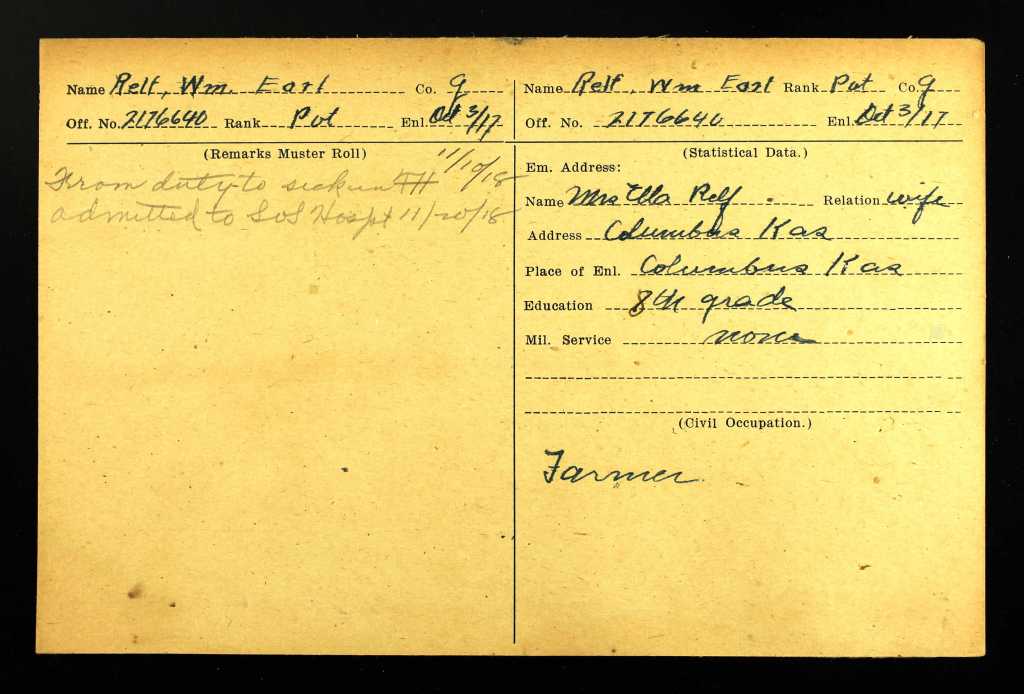 Name Relf, Wm. Earl Co. G
Off. No. 2176640 Rank Pvt Enl. Oct 3/17
(Remarks Muster Roll)
From duty to sick in FH 11/10/18
admitted to SOS Hospt 11/20/18
Name Relf, Wm Earl Rank Pvt Co. G
Off. No. 2176640 Enl. Oct 3/17
(Statistical Data.)
Em. Address:
Name Mrs Ella Relf. Relation wife
Address Columbus Kas
Place of Enl. Columbus Kas
Education 8th grade
Mil. Service none
(Civil Occupation.)
Farmer